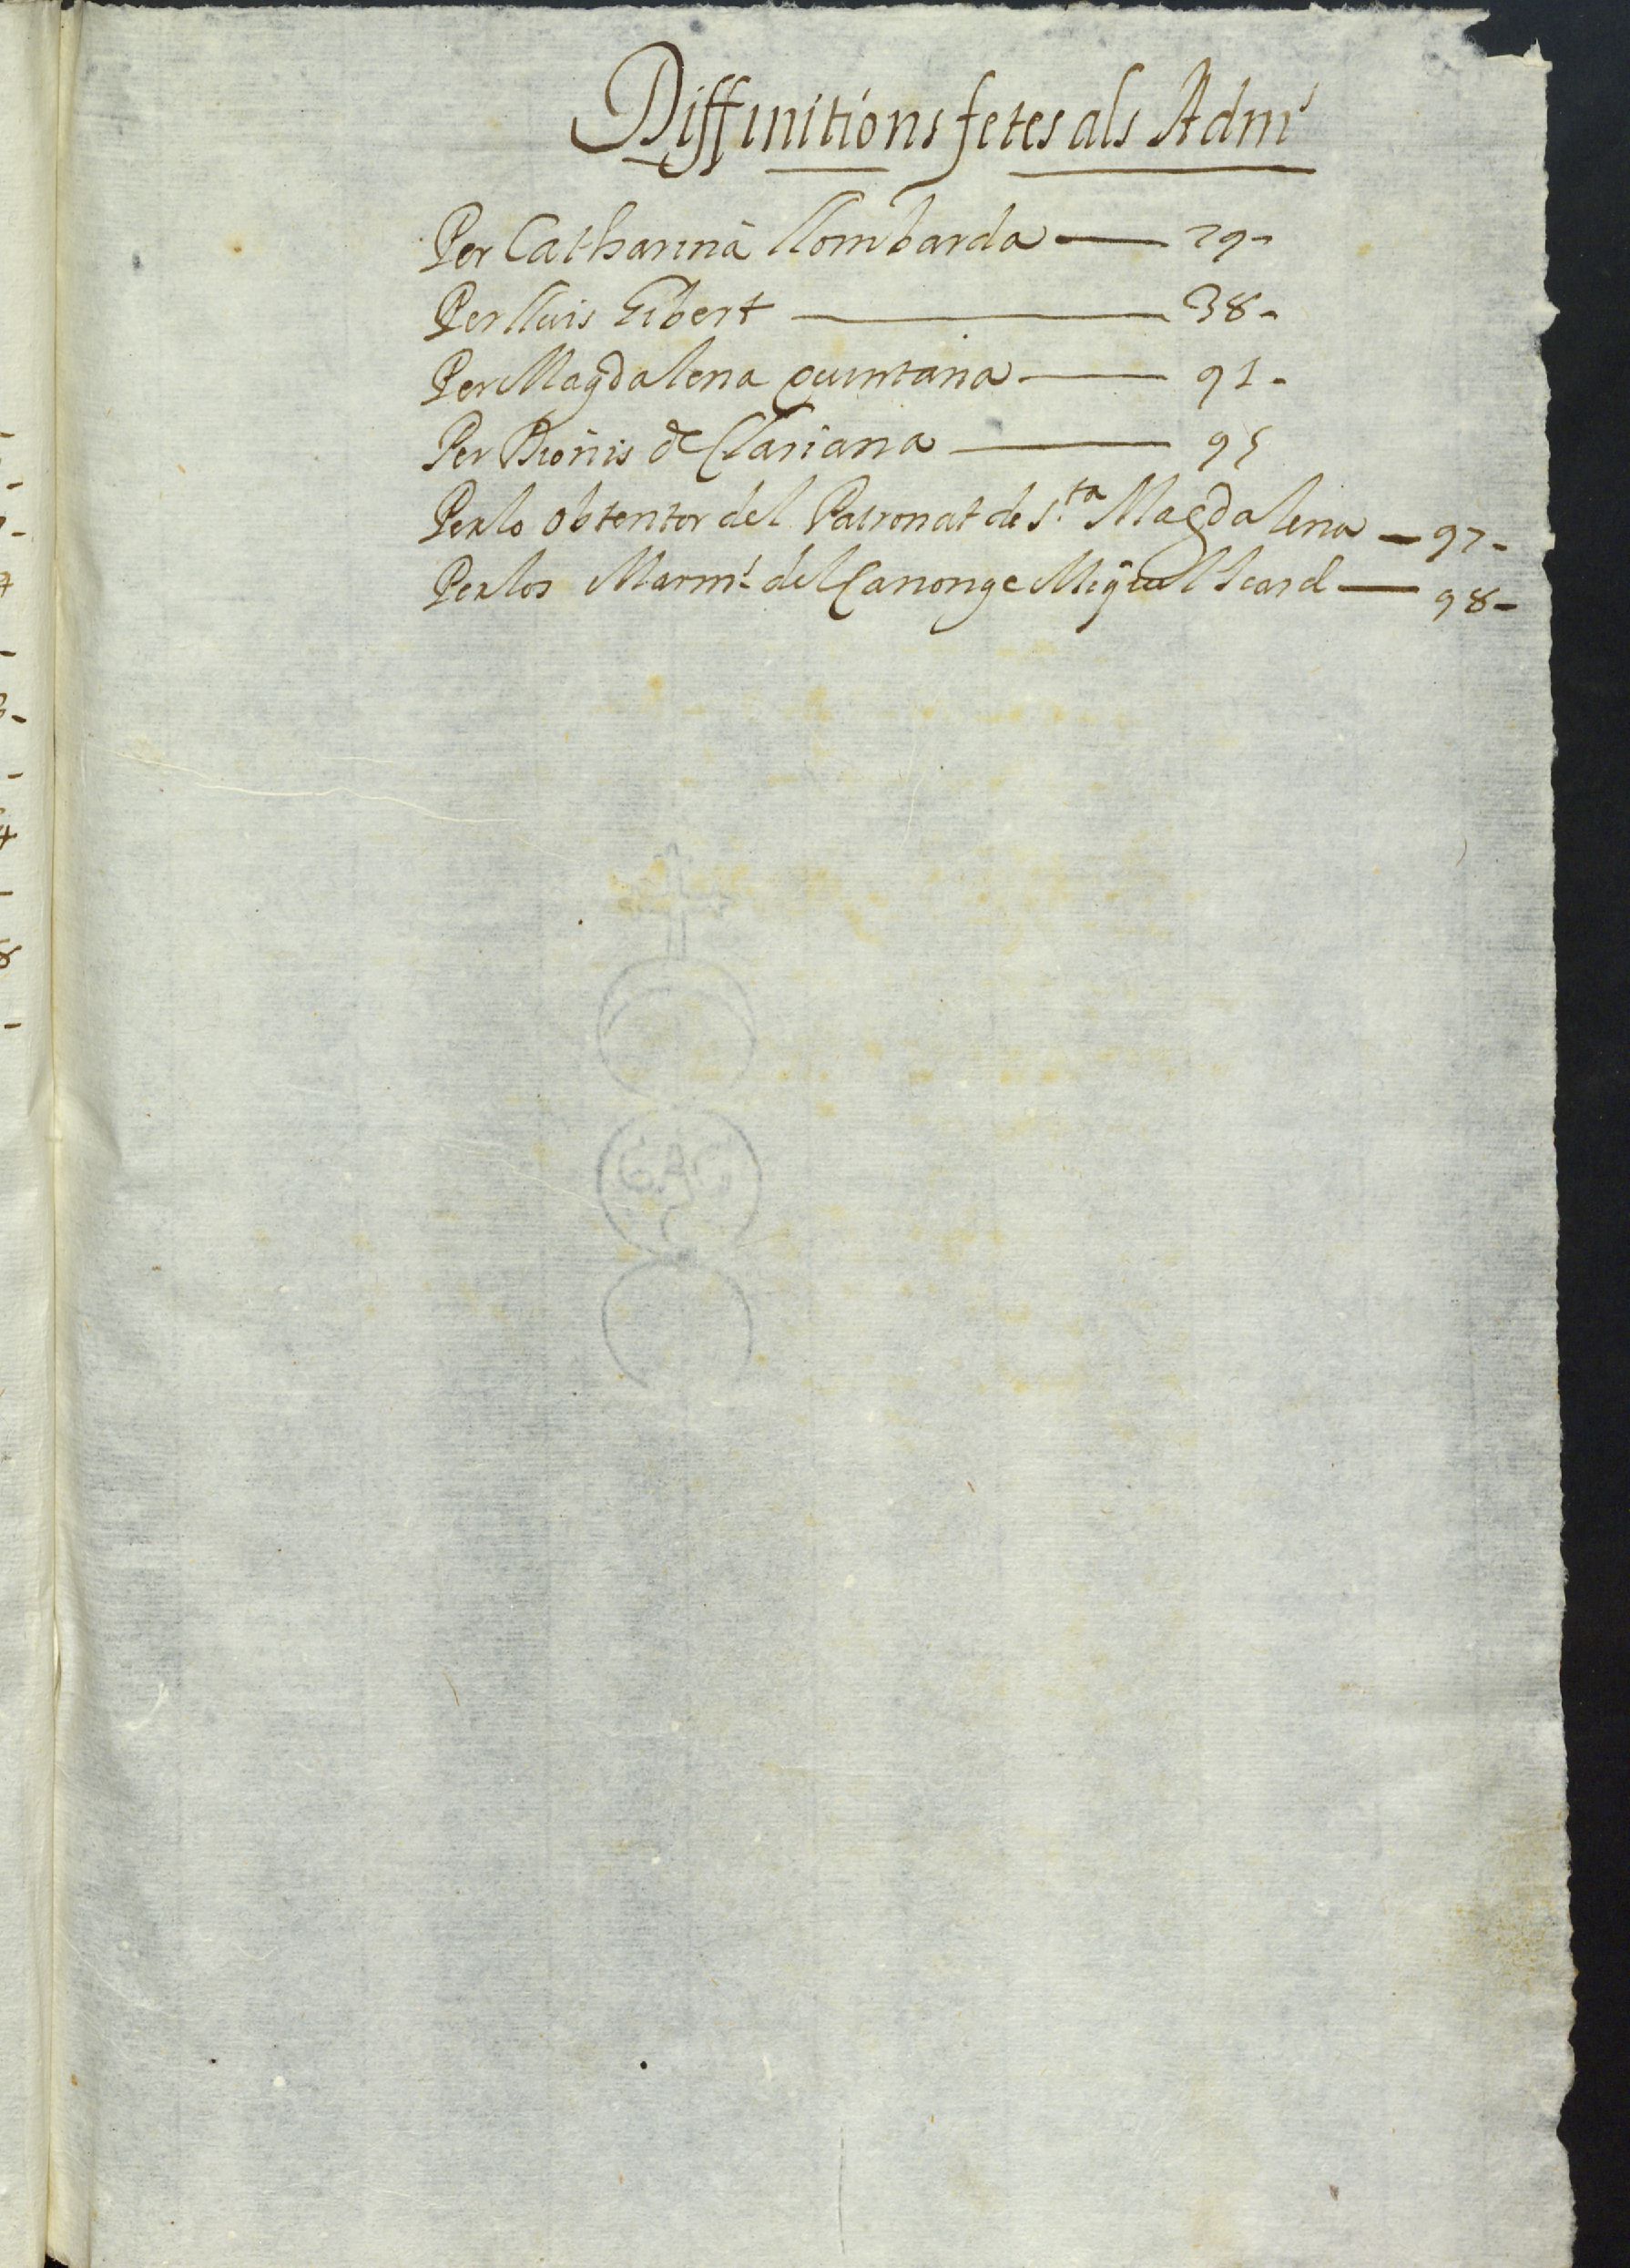 Diffinitions fetes als Adm.ˢ
Per Catharina Llombarda — 29-
Per lluis Gibert — 38-
Per Magdalena quintana — 91-
Per Dionis de Clariana — 95
Per lo obtentor del Patronat de S.ta Magdalena — 97-
Per los Marm.ˢ del Canonge Miquel Icard — 98-